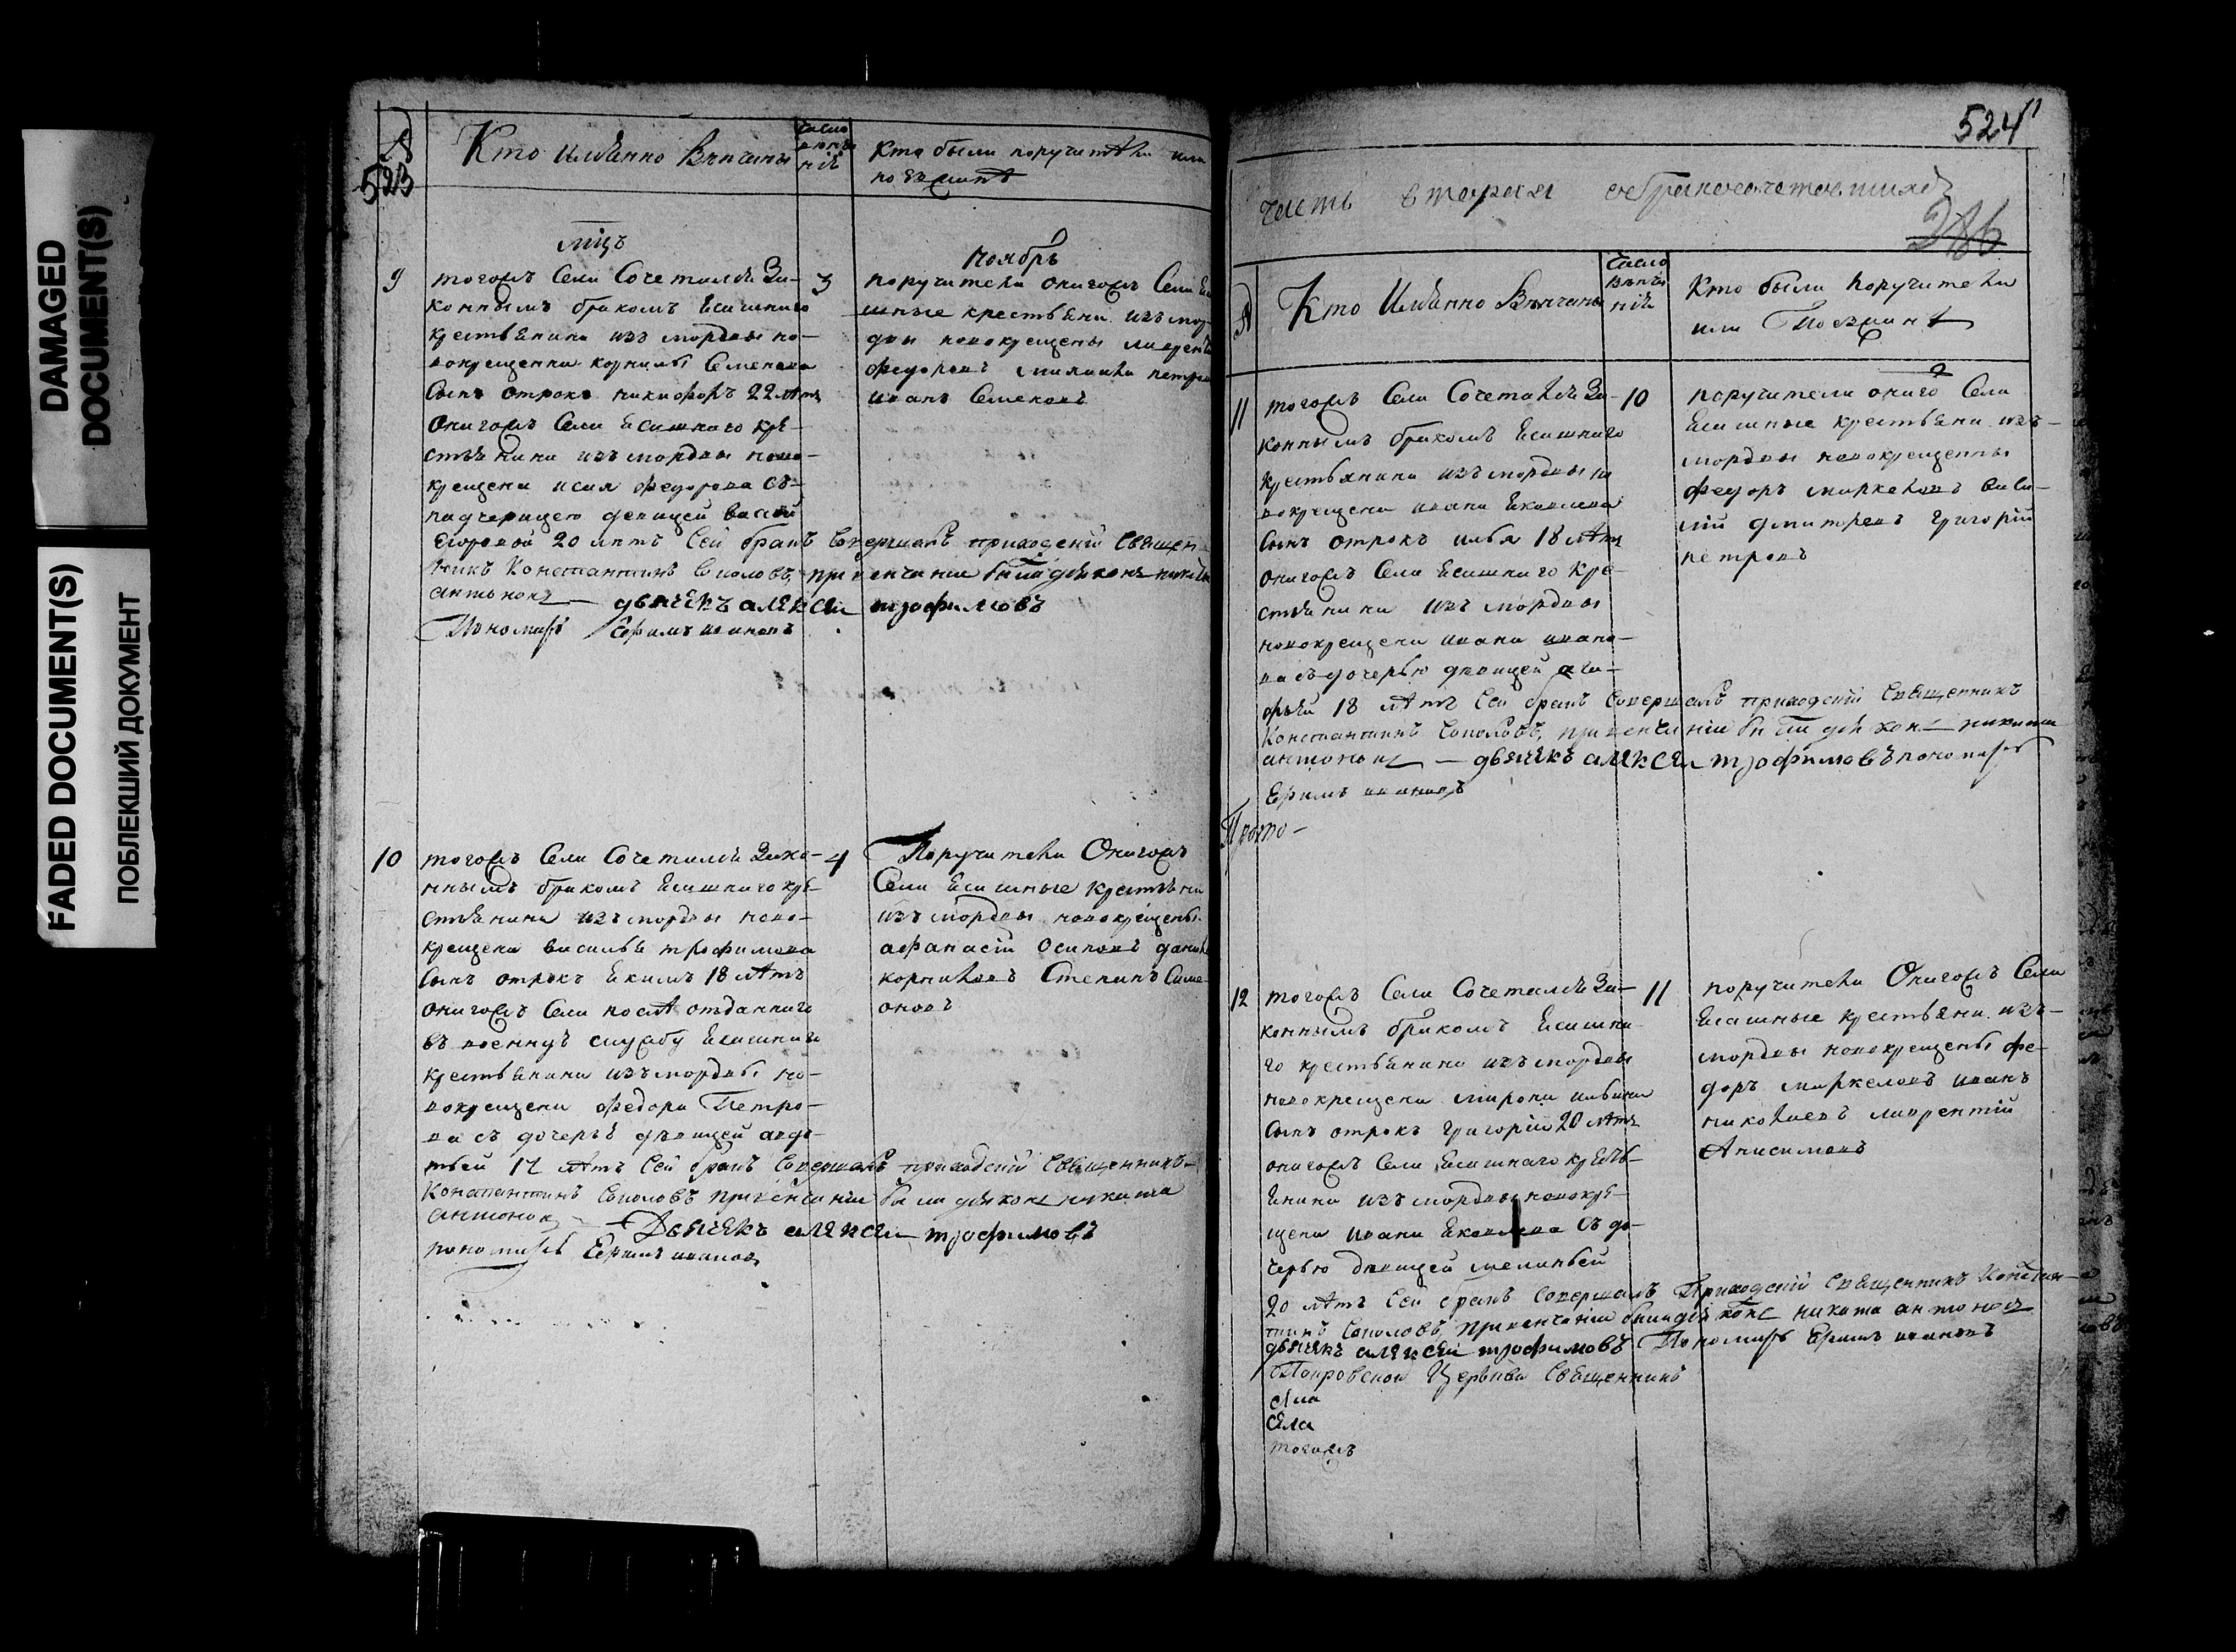 DAMAGED
DOCUMENT(S)
FADED DOCUMENT(S)
ПОБЛЕКШИЙ ДОКУМЕНТ
523
Кто имянно венчаны
число
венча
нія
Кто были поручители или
поезжанѣ
мцъ
ноябрь
9
тогожъ Села Сочетался За-
коннымъ бракомъ Ясашнаго
крестьянина изъ мордвы но-
вокрещенна корнилы Семенова
Сынъ отрокъ никифоръ 22 лѣтъ
Оногожъ Села Ясашнаго кре-
стьянина изъ мордвы ново-
крещена исая федорова съ
падчерицею девицей
Егоровой 20 летъ Сей бракъ Совершалъ приходскій Священ-
никъ Константинъ Соколовъ, при венчаніи были дьяконъ никита
антоновъ — дьячекъ алексеи трофимовъ
Пономарь Ефимъ ивановъ
3
поручители оногожъ Села Яса
шные крестьяна изъ мор-
двы новокрещены лаврентей
федоровъ петровъ
иванъ Семеновъ
10
тогожъ Села Сочетался Зако-
ннымъ бракомъ Ясашнаго кре-
стьянина изъ мордвы ново-
крещена василья трофимова
Сынъ отрокъ Якимъ 18 лѣтъ
оногожъ Села послѣ отданнаго
въ военную службу Ясашнаго
крестьянина изъ мордвы но-
вокрещена федора Петро-
ва съ дочерью девицей авдо-
тьей 17 лѣтъ Сей бракъ Совершалъ приходскій Священникъ
Константинъ Соколовъ при венчаніи были дьяконъ никита
антоновъ — Дьячекъ алексеи трофимовъ
пономарь Ефимъ ивановъ
4
Поручители Оногожъ
Села Ясашные крестьяна
изъ мордвы новокрещены
афанасій Осиповъ данила
корниловъ Степанъ Симе-
оновъ
524
11
часть вторая о бракосочетавшихъ
286
Кто Имянно Венчаны
Число
венча
нія
Кто были поручители
или Поезжанѣ
11
тогожъ Села Сочетался За-
коннымъ бракомъ Ясашнаго
крестьянина изъ мордвы но
вокрещена ивана Яковлева
Сынъ отрокъ илья 18 лѣтъ
оногожъ Села Ясашнаго кре-
стьянина изъ мордвы
новокрещена ивана ивано-
ва съ дочерью девицей ага-
фьей 18 лѣтъ Сей бракъ Совершалъ приходскій Священникъ
Константинъ Соколовъ, при венчаніи были дьяконъ никита
антоновъ — дьячекъ алексеи трофимовъ пономарь
Ефимъ ивановъ
Прото-
10
поручители оного Села
Ясашные крестьяна изъ-
мордвы новокрещенны
федоръ маркеловъ васи-
лій дмитревъ григорій
петровъ
12
тогожъ Села Сочетался За-
коннымъ бракомъ Ясашна-
го крестьянина изъ мордвы
новокрещена мирона ильина
Сынъ отрокъ григорій 20 лѣтъ
оногожъ Села Ясашнаго кресть-
янина изъ мордвы новокре-
щена ивана Яковлева Съ до-
черью девицей меланьей
20 лѣтъ Сей бракъ Совершалъ Приходскій Священникъ Констан-
тинъ Соколовъ, при венчаніи были дьяконъ никита антоновъ
дьячекъ алексеи трофимовъ Пономарь Ефимъ ивановъ
Покровской Церькви Священникъ
села
тогожъ
11
поручители Оногожъ Села
Ясашные крестьяна изъ-
мордвы новокрещены фе-
доръ маркеловъ иванъ
николаевъ лаврентій
Анисимовъ